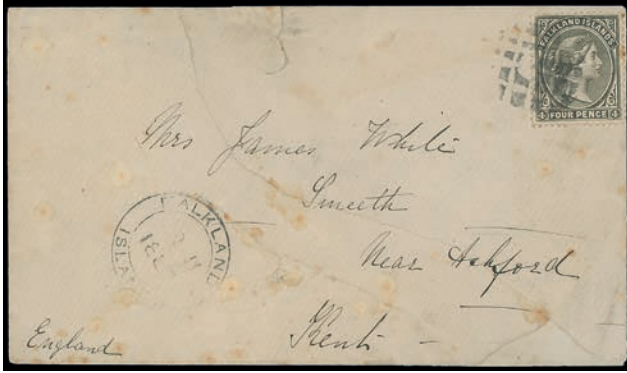 FALKLAND ISLANDS
4 FOUR PENCE 4
Mrs James White
Smeeth
Near Ashford
Kent
England
FALKLAND